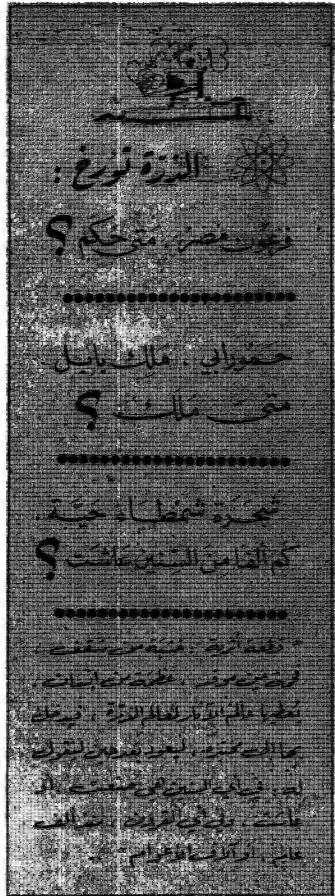 الذرّة تؤرخ :
فرعون مصر، متى حكم ؟
حمورابي ، ملك بابل
متى ملك ؟
شجرة شمطاء حيّة .
كم ألفا من السّنين عاشت ؟
* قطعة أثرية ، خشبة من سقف ،
فحمة من موقد ، عظمة من إنسان ،
يُعطيها عالم الآثار لعالم الذرّة ، فيدخل
بها إلى مختبره ، ليعود بعد حين لنقول
له : في أي السنين هي صنعت ، أو
عاشت ، وفي أي القرون ، بعد ألف
عام ، أو آلاف الأعوام .